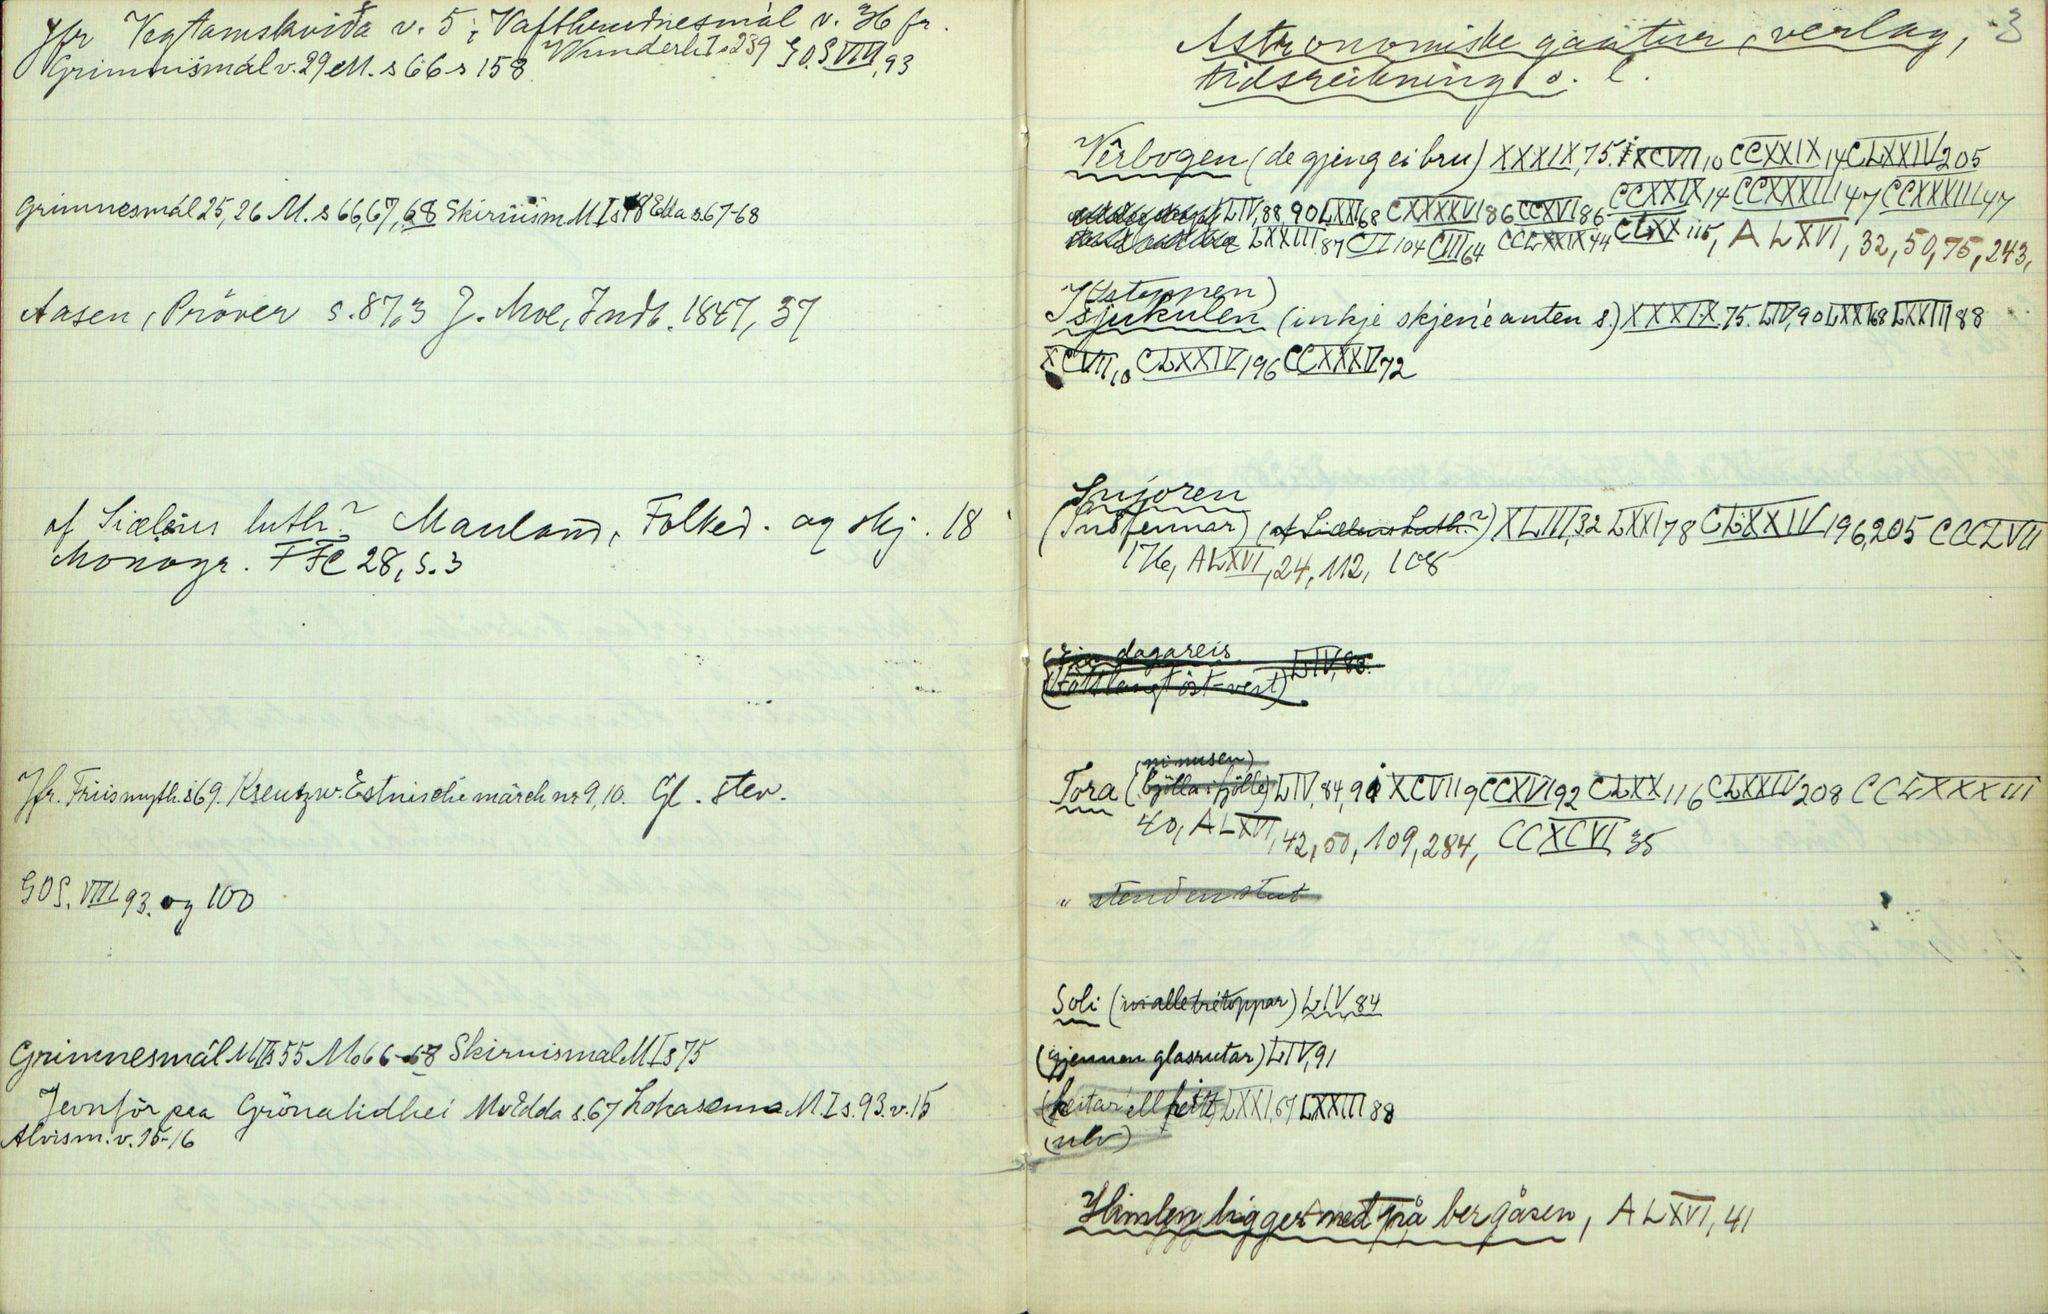 Jfr Vegtamskviða v. 5; Vafthrudnesmál v. 36 fr.
Grimnismál v. 29 M. s 66 s 158 Wunderh I s 239 GOS VIII, 93
Grimnesmál 25, 26 M. s 66, 67, 68 Skirnism M I s 78 Edda s. 67-68
Aasen, Pröver s. 87,3 J. Moe, Indb. 1847, 37
af Siælens luth? Mauland, Folked. og skj. 18
Monogr. FFC 28, s. 3
Jfr. Friis myth. s 69. Kreutzw. Estnische märch nr 9, 10. Gl. stev.
GOS. VIII 93. og 100
Grimnesmál M I s 55 Mo 66-68 Skirnismal M I s 75
Jevnför paa Grönalidhei Mo Edda s. 67 Lokasenna M. I s. 93. v. 15
Alvism. v. 15-16
Astronomiske gaatur, verlag, 3
tidsreikning o. l.
Vêrbogen (de gjeng ei bru) XXXIX, 75. XCVII 10 CCXXIX 14 CLXXIV 205
LIV, 88, 90 LXXI 68 CXXXXVI 86 CCXVI 86 CCXXIX 14 CCXXXIII 47 CCXXXIII 47
LXXIII 87 CII 104 CIII 64 CCLXXIX 44 CLXX 115, A LXVI, 32, 50, 75, 243,
(Istappen)
Isjukulen (inkje skjene anten s.) XXXIX. 75. LIV, 90 LXXI 68 LXXIII 88
XCVII, 10 CLXXIV 196 CCXXXV 72
Snjoren
(Snöfennar) (af Siælens Luth.?) XLIII, 32 LXXI 78 CLXXIV 196, 205 CCCLVII
176, A LXVI, 24, 112, 108
(Ein dagareis LIV, 83.
(Fatt langt öst-vest)
(ni nusen)
Tora (bjölla i fjölle) LIV, 84, 91 XCVII 9 CCXVI 92 CLXX 116 CLXXIV 208 CCLXXXIII
40, A LXVI, 42, 50, 109, 284, CCXCVI 35
" stend en stut
Soli (ivi alle tretoppar) LIV, 84
(gjennon glasrutar) LIV, 91
(heitar ell heitt) LXXI, 67 LXXIII 88
(ulv)
Himlen ligger ned på bergåsen, A LXVI, 41